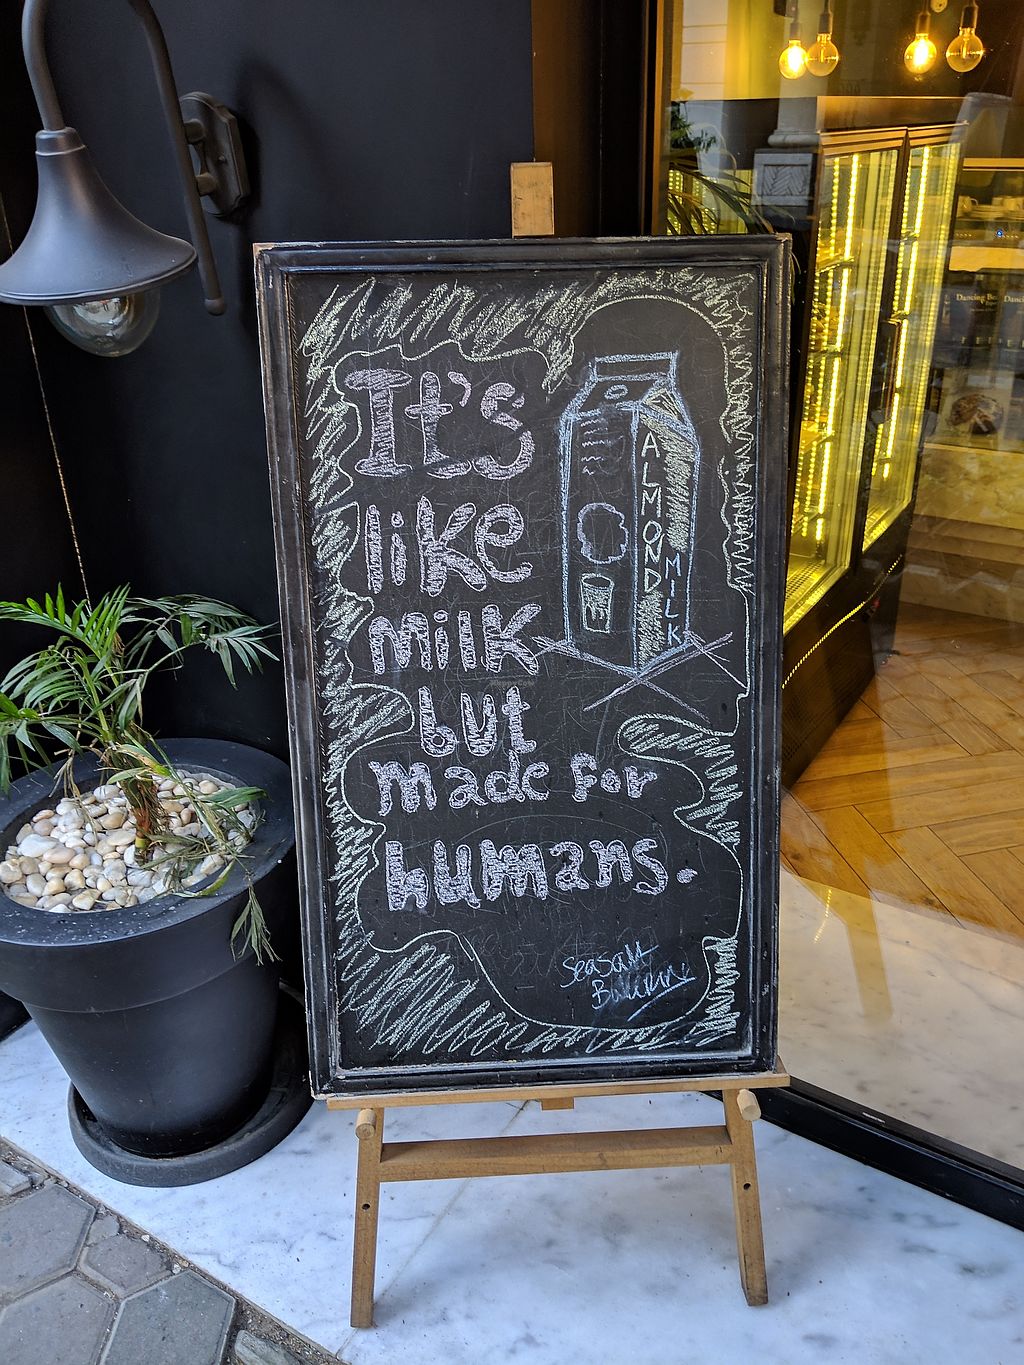 It's
like
milk
but
made for
humans.
ALMOND
MILK
Seasalt
Dancing